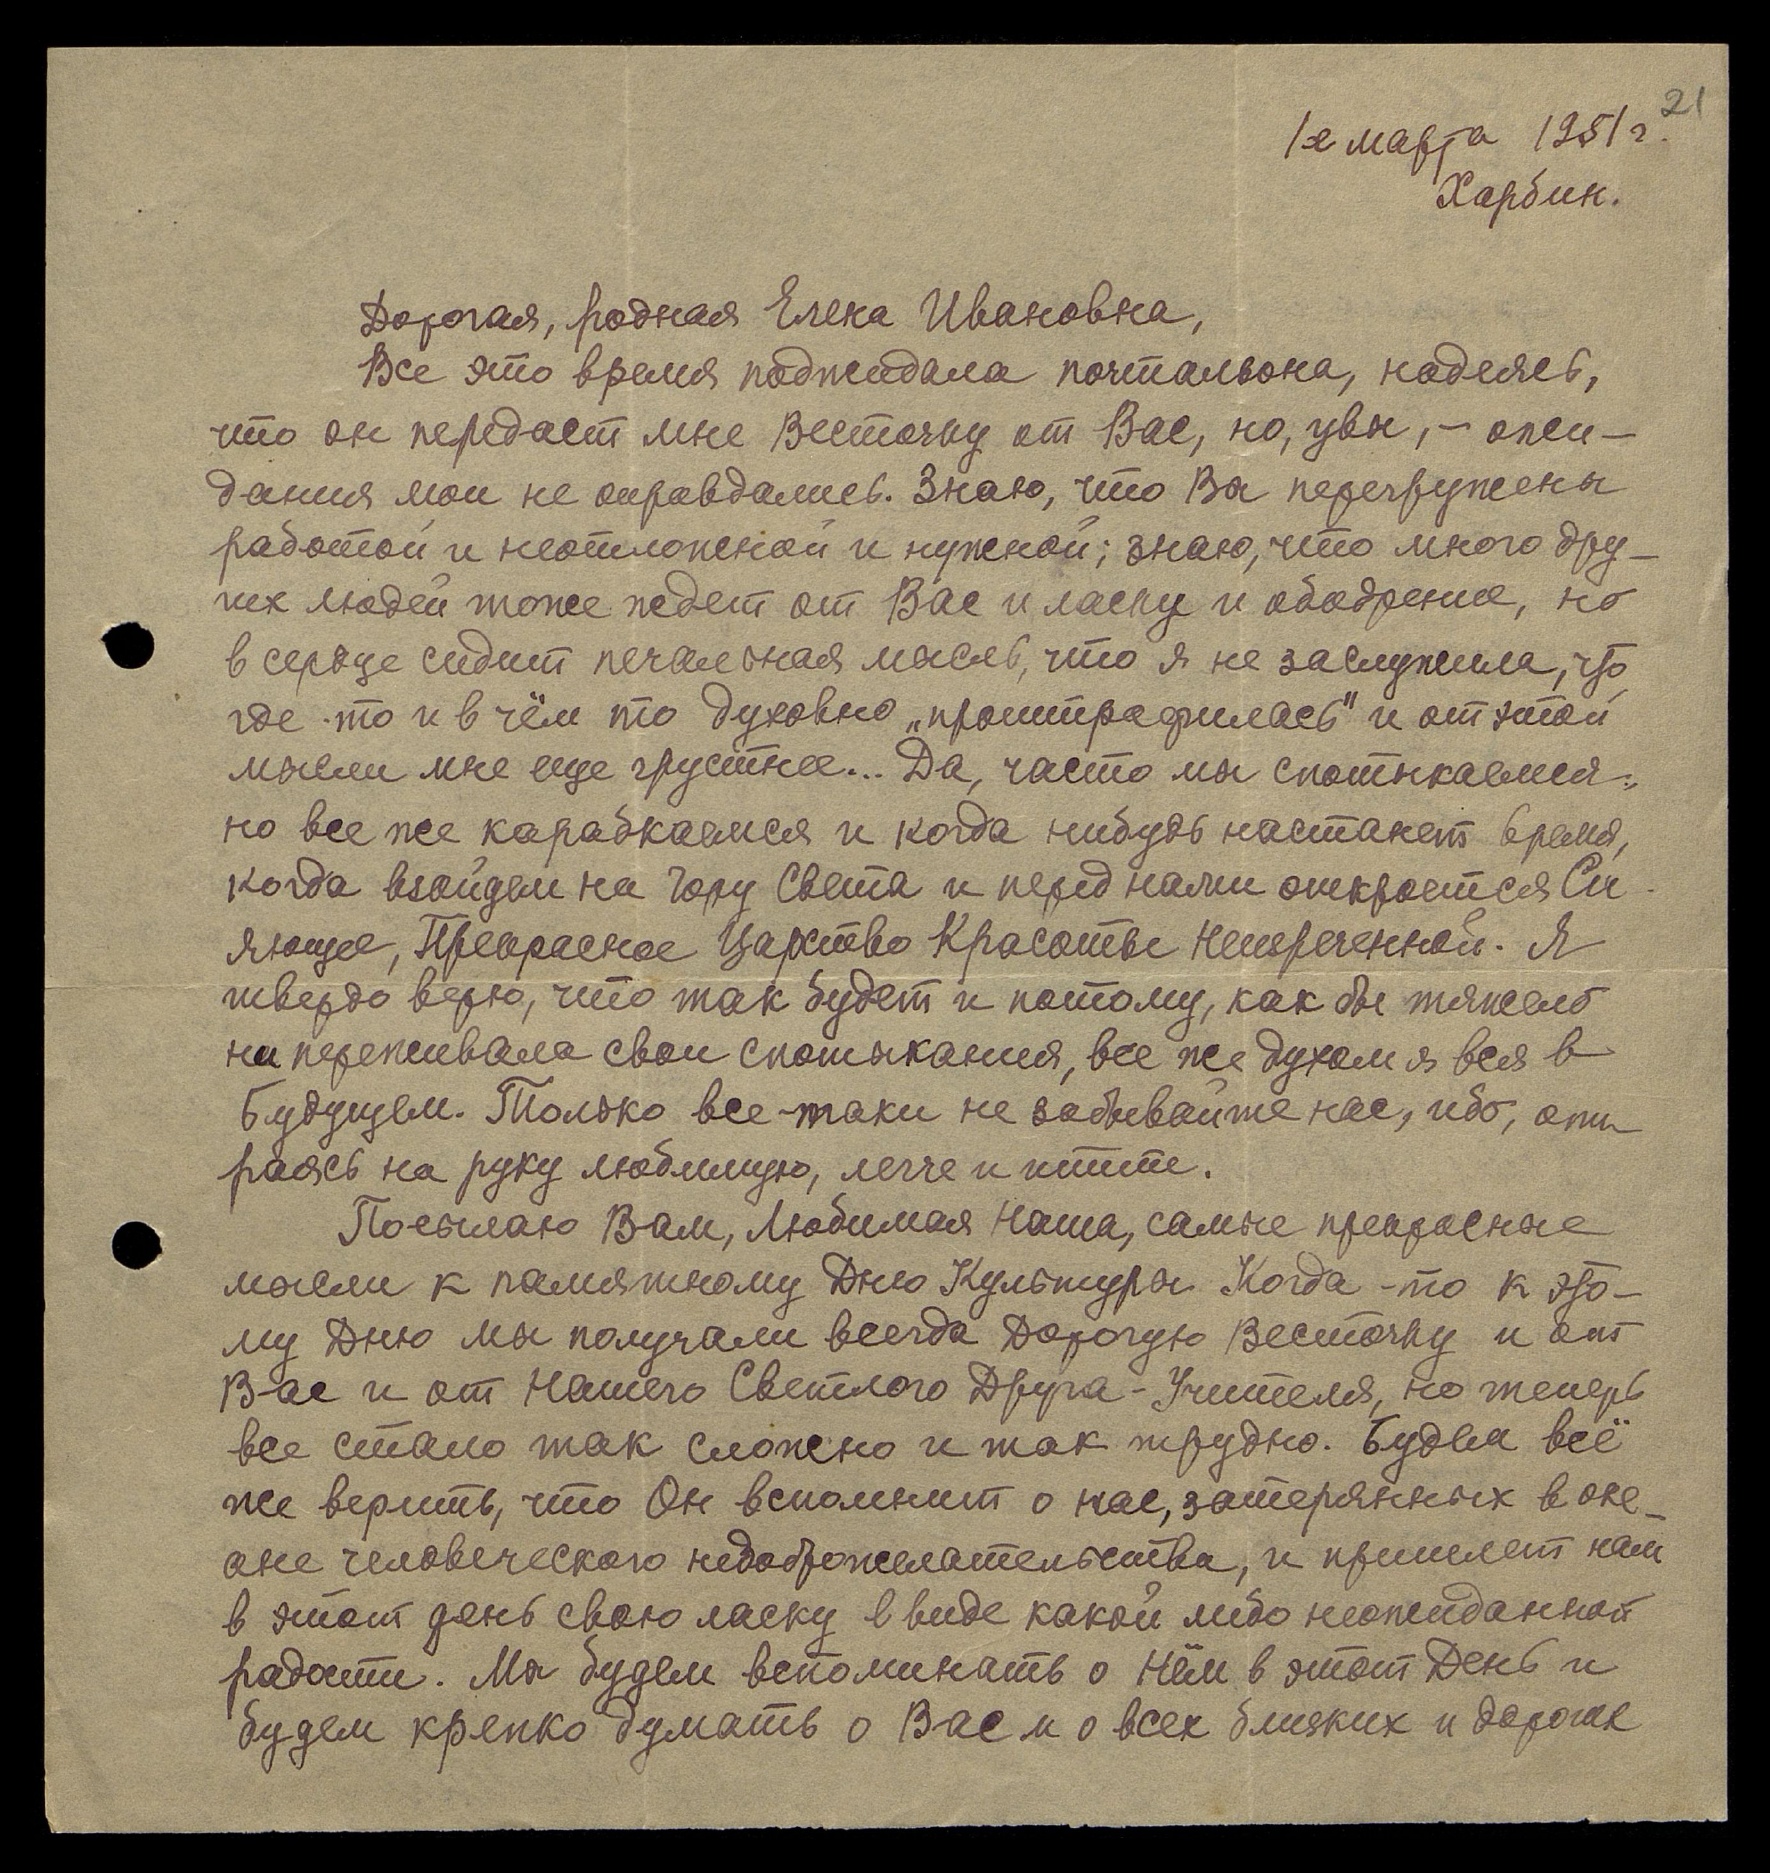 21
1е марта 1951 г.
Харбин.
Дорогая, родная Елена Ивановна,
Все это время поджидала почтальона, надеясь,
что он передаст мне Весточку от Вас, но, увы, – ожи-
дания мои не оправдались. Знаю, что Вы перегружены
работой и неотложной и нужной; знаю, что много дру-
гих людей тоже ждет от Вас и ласку и ободрение, но
в сердце сидит печальная мысль, что я не заслужила, что
где-то и в чём то духовно „проштрафилась" и от этой
мысли мне еще грустнее... Да, часто мы спотыкаемся..
но все же карабкаемся и когда нибудь настанет время,
когда взойдем на Гору Света и перед нами откроется Си-
яющее, Прекрасное Царство Красоты Неизреченной. Я
твердо верю, что так будет и потому, как бы тяжело
ни переживала свои спотыкания, все же духом я вся в
Будущем. Только все-таки не забывайте нас, ибо, опи-
раясь на руку любимую, легче и итти.
Посылаю Вам, Любимая Наша, самые прекрасные
мысли к памятному Дню Культуры. Когда-то к это-
му Дню мы получали всегда Дорогую Весточку и от
Вас и от Нашего Светлого Друга-Учителя, но теперь
все стало так сложно и так трудно. Будем всё
же верить, что Он вспомнит о нас, затерянных в оке-
ане человеческого недоброжелательства, и пришлет нам
в этот день свою ласку в виде какой либо неожиданной
радости. Мы будем вспоминать о Нём в этот День и
будем крепко думать о Вас и о всех близких и дорогих